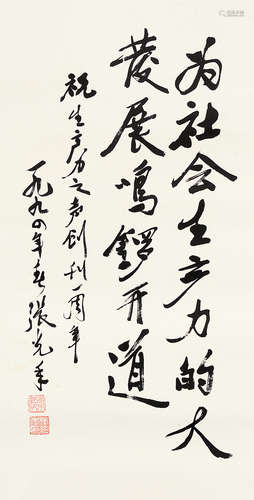 为社会生产力的大
發展鳴鑼开道
祝生产力之声创刊一周年
一九九四年春 張光年